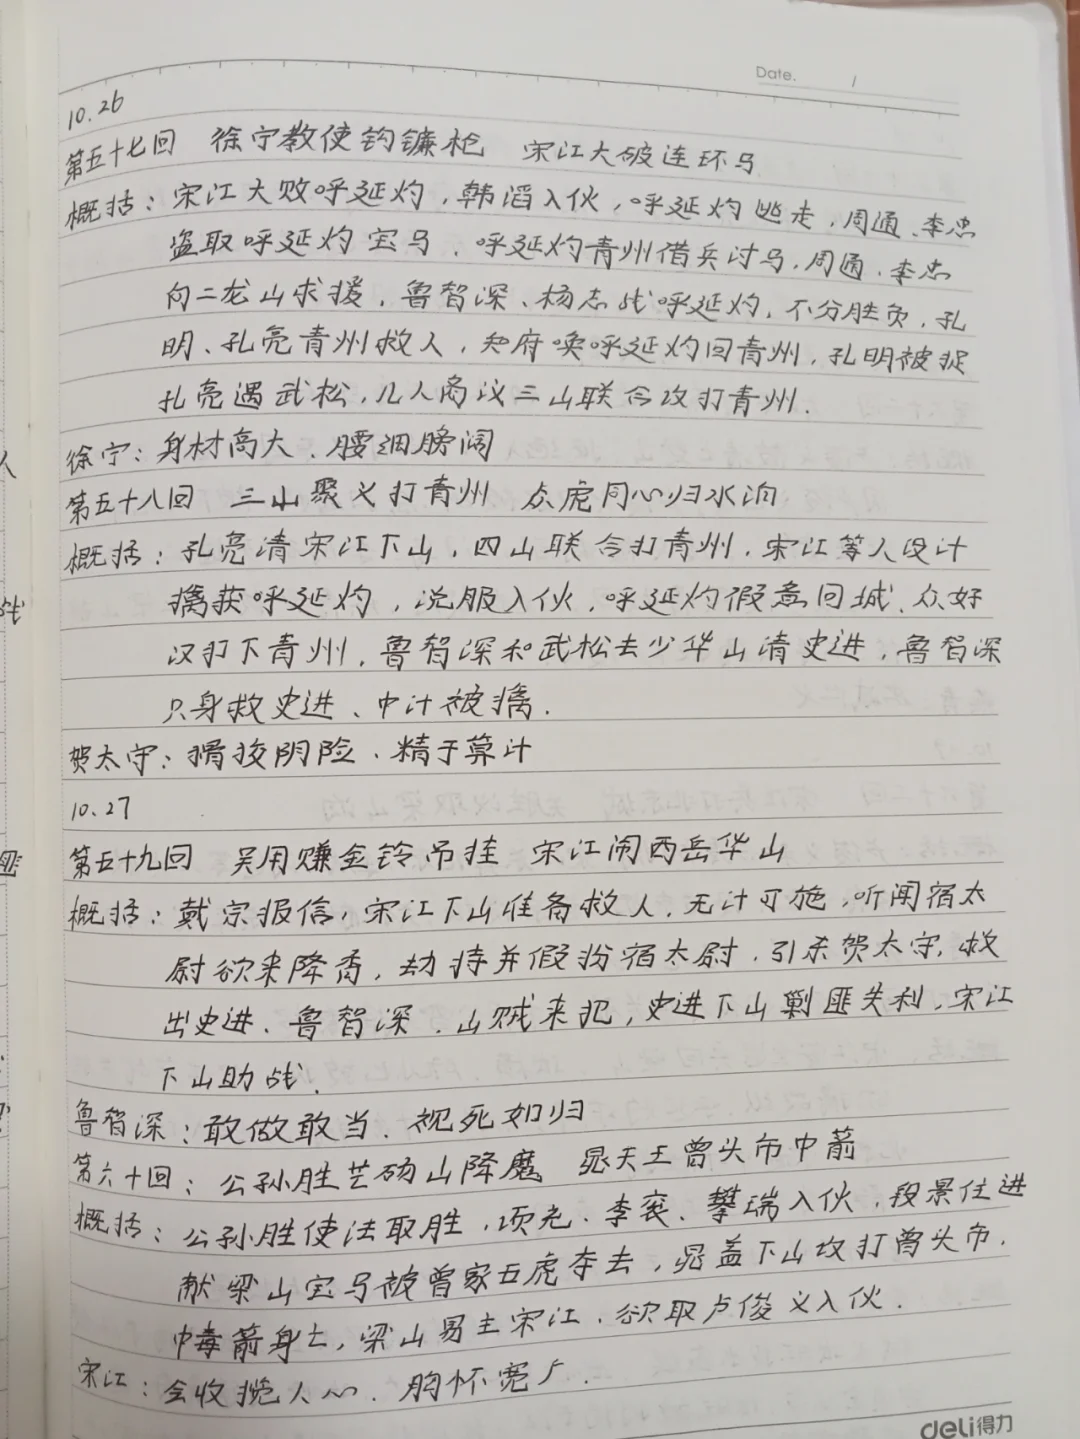 Date. /
10.26
第五十七回 徐宁教使钩镰枪 宋江大破连环马
概括：宋江大败呼延灼，韩滔入伙，呼延灼逃走，周通、李忠
盗取呼延灼宝马，呼延灼青州借兵讨马，周通、李忠
向二龙山求援，鲁智深、杨志战呼延灼，不分胜负，孔
明、孔亮青州救人，知府唤呼延灼回青州，孔明被捉
孔亮遇武松，几人商议三山联合攻打青州.
徐宁：身材高大、腰细膀阔
第五十八回 三山聚义打青州 众虎同心归水泊
概括：孔亮请宋江下山，四山联合打青州，宋江等人设计
擒获呼延灼，说服入伙，呼延灼假意回城、众好
汉打下青州，鲁智深和武松去少华山请史进，鲁智深
只身救史进、中计被擒.
贺太守：猾狡阴险、精于算计
10.27
第五十九回 吴用赚金铃吊挂 宋江闹西岳华山
概括：戴宗报信，宋江下山准备救人，无计可施，听闻宿太
尉欲来降香，劫持并假扮宿太尉，引杀贺太守，救
出史进、鲁智深，山贼来犯，史进下山剿匪失利，宋江
下山助战.
鲁智深：敢做敢当、视死如归
第六十回：公孙胜芒砀山降魔 晁天王曾头市中箭
概括：公孙胜使法取胜，项充、李衮、攀瑞入伙，段景住进
献梁山宝马被曾家五虎夺去，晁盖下山攻打曾头市，
中毒箭身亡，梁山易主宋江，欲取卢俊义入伙.
宋江：会收揽人心、胸怀宽广.
deli得力